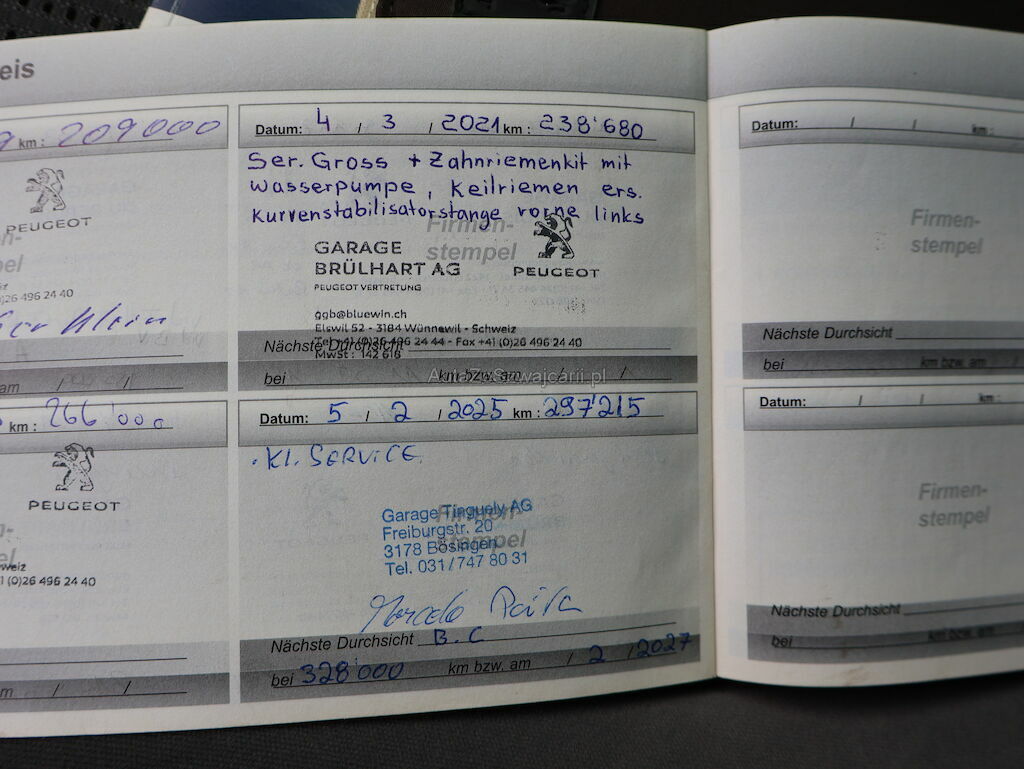 eis
km : 209000
PEUGEOT
26 496 24 40
am / /
km : 266'000
PEUGEOT
(0)26 496 24 40
/ /
Datum: 4 / 3 / 2021 km : 238'680
Ser. Gross + Zahnriemenkit mit
Wasserpumpe, Keilriemen ers.
Kurvenstabilisatorstange vorne links
Firmen-
stempel
GARAGE
BRÜLHART AG
PEUGEOT VERTRETUNG
PEUGEOT
ggb@bluewin.ch
Elswil 52 - 3184 Wünnewil - Schweiz
Tel +41 (0)26 496 24 44 - Fax +41 (0)26 496 24 40
MwSt : 142 616
Nächste Durchsicht
bei km bzw. am / /
Datum: 5 / 2 / 2025 km : 297'215
. Kl. SERVICE
Firmen-
stempel
Garage Tinguely AG
Freiburgstr. 20
3178 Bösingen
Tel. 031/747 80 31
Nächste Durchsicht B.C
bei 328'000 km bzw. am / 2 / 2027
Datum: / / km :
Firmen-
stempel
Nächste Durchsicht
bei km bzw. am / /
Datum: / / km :
Firmen-
stempel
Nächste Durchsicht
bei km bzw. am / /